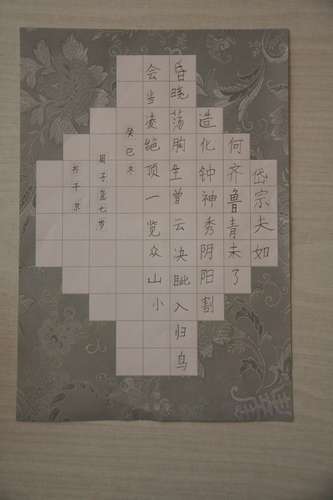 岱宗夫如
何齐鲁青未了
造化钟神秀阴阳割
昏晓荡胸生曾云决眦入归鸟
会当凌绝顶一览众山小
癸巳
子七岁
书于京